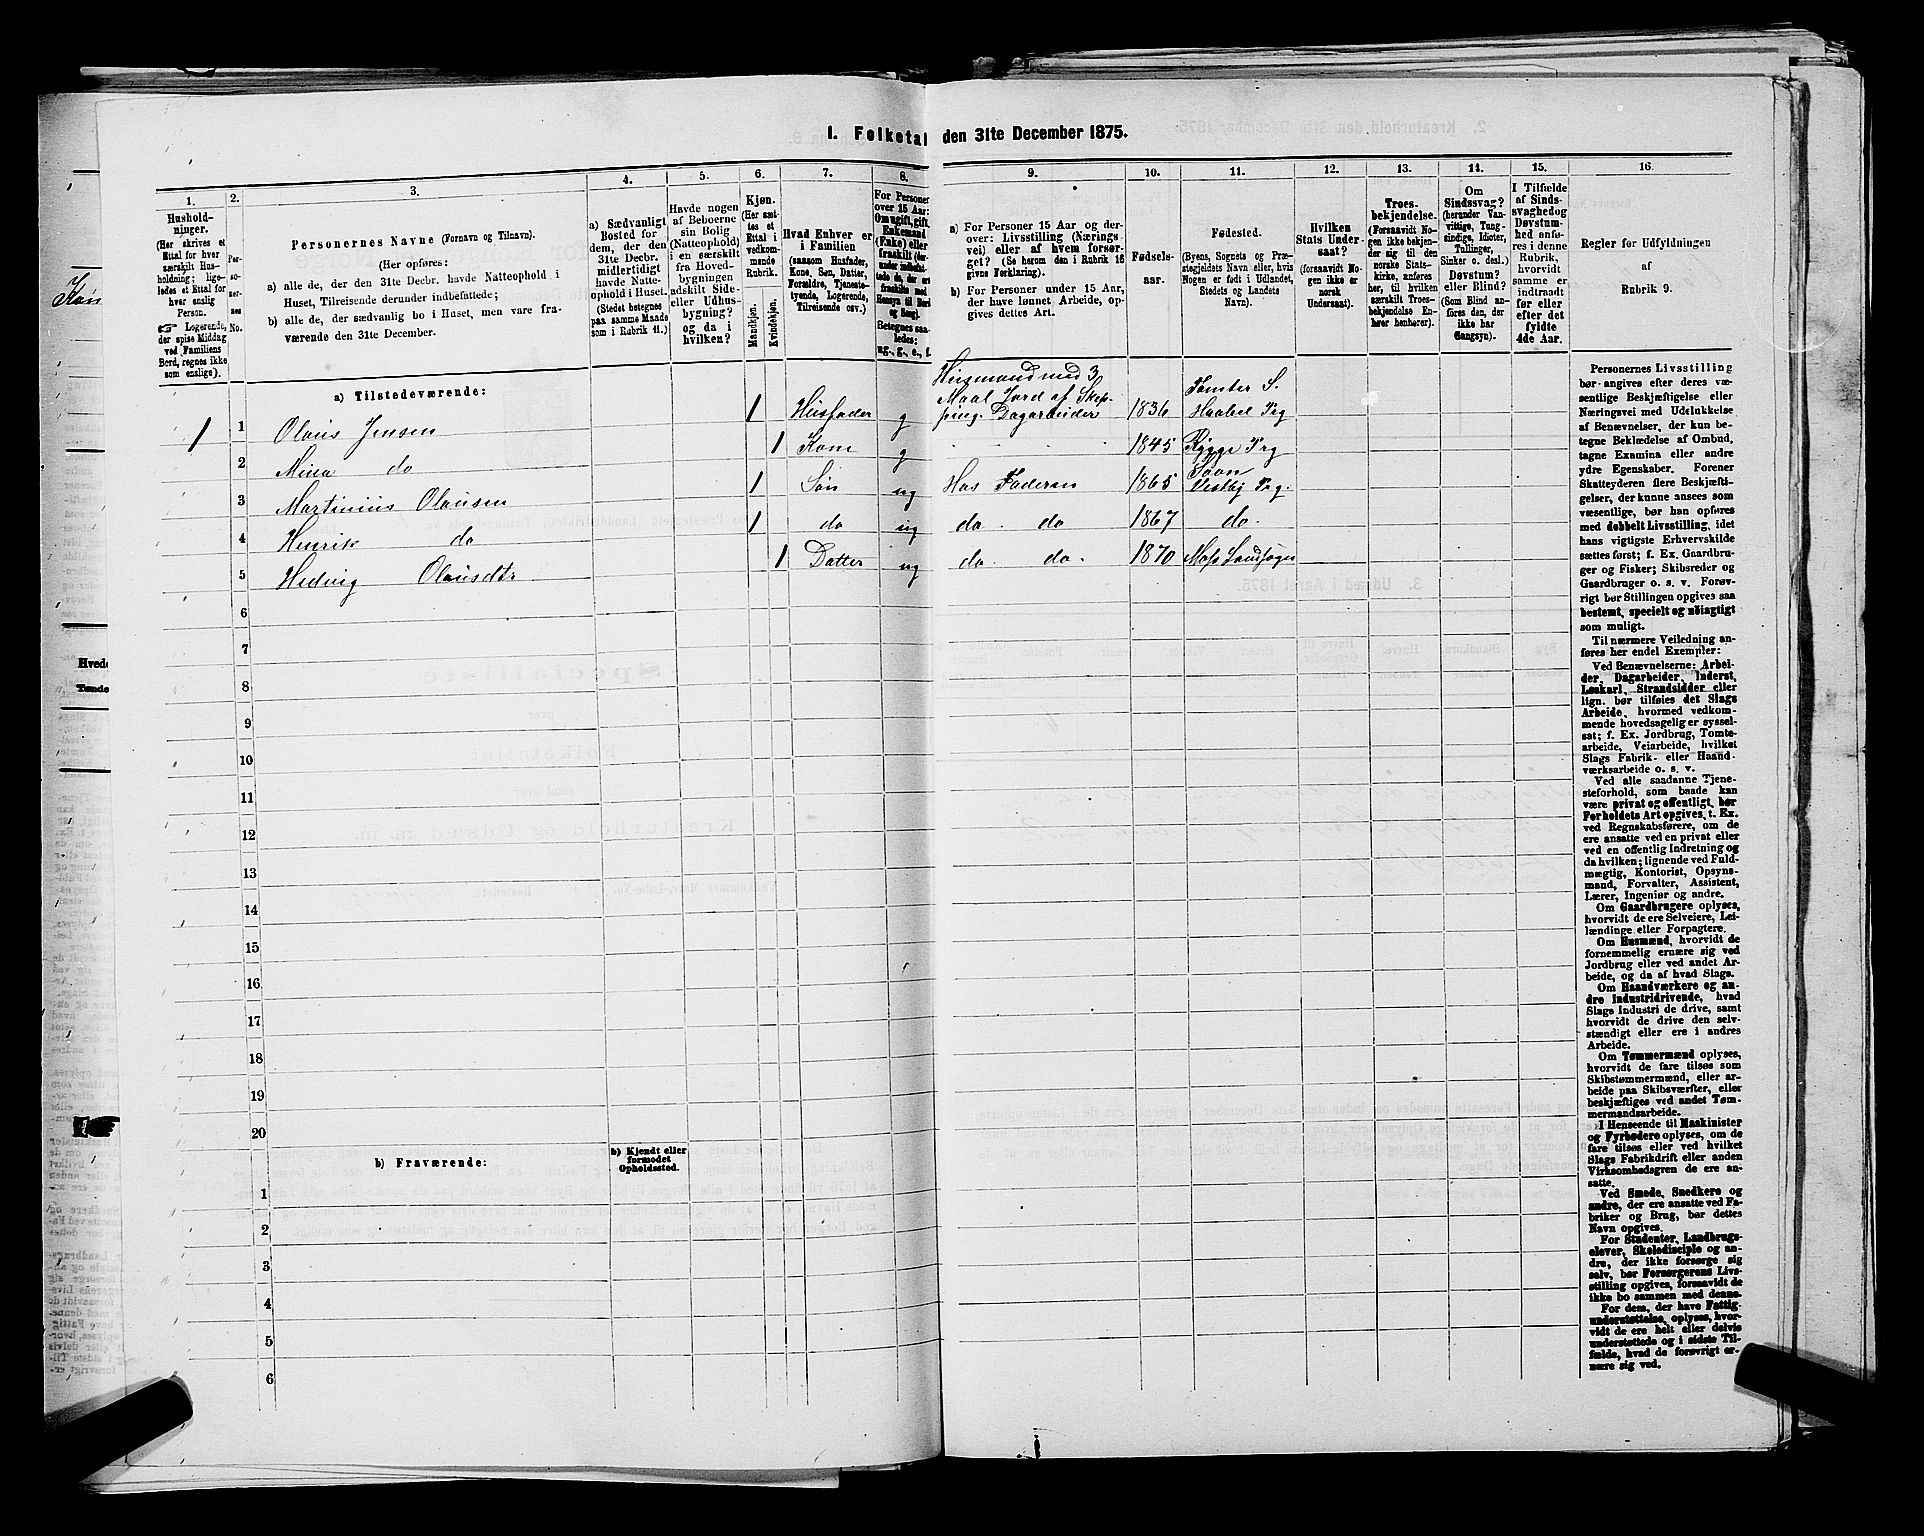 1. Folketal den 31te December 1875.
1.
Hushold-
ninger.
(Her skrives et
Ettal for hver
særskilt Hus-
holdning; lige-
ledes et Ettal for
hver enslig
Person.
Logerende,
der spise Middag
ved Familiens
Bord, regnes ikke
som enslige).
2.
Per-
so-
ner-
nes
No.
3.
Personernes Navne (Fornavn og Tilnavn).
(Her opføres:
a) alle de, der den 31te Decbr. havde Natteophold i
Huset, Tilreisende derunder indbefattede;
b) alle de, der sædvanlig bo i Huset, men vare fra-
værende den 31te December.
4.
a) Sædvanligt
Bosted for
dem, der den
31te Decbr.
midlertidigt
havde Natte-
ophold i Huset.
(Stedet betegnes
paa samme Maade
som i Rubrik 11.)
5.
Havde nogen
af Beboerne
sin Bolig
(Natteophold)
i en særskilt
fra Hoved-
bygningen
adskilt Side-
eller Udhus-
bygning?
og da i
hvilken?
6.
Kjøn.
(Her sæt-
tes et
Ettal i
vedkom-
mende
Rubrik.
Mandkjøn.
Kvindekjøn.
7.
Hvad Enhver er
i Familien
(saasom Husfader,
Kone, Søn, Datter,
Forældre, Tjeneste-
tyende, Logerende,
Tilreisende osv.)
8.
For Personer
over 15 Aar:
Om ugift, gift,
Enkemand
(Enke) eller
fraskilt
Betegnes saa-
ledes:
ug., g., e., f.
9.
a) For Personer 15 Aar og der-
over: Livsstilling (Nærings
vei) eller af hvem forsør-
get? (Se herom den i Rubrik 16
givne Forklaring).
b) For Personer under 15 Aar,
der have lønnet Arbeide, op-
gives dettes Art.
10.
Fødsels-
aar.
11.
Fødested.
(Byens, Sognets og Præ-
stegjeldets Navn eller, hvis
Nogen er født i Udlandet,
Stedets og Landets
Navn).
12.
Hvilken
Stats Under-
saat?
(foresaavidt No-
gen ikke er
norsk
Undersaat).
13.
Troes-
bekjendelse.
(Forsaavidt No-
gen ikke bekjen-
der sig til den
norske Stats-
kirke, anføres
her, til hvilken
særskilt Troes-
bekjendelse En-
hver henhører).
14.
Om
Sindssvag?
(herunder Van-
vittige, Tung-
sindige, Idioter,
Tullinger,
Sinker o. desl.)
Døvstum?
eller Blind?
(Som Blind an-
føres den, der
ikke har
Gangsyn).
15.
I Tilfælde
af Sinds-
svaghed og
Døvstum-
hed anfø-
res i denne
Rubrik,
hvorvidt
samme er
indtraadt
før eller
efter det
fyldte
4de Aar.
16.
Regler for Udfyldningen
af
Rubrik 9.
a) Tilstedeværende:
1 1 Olaus Jensen 1 Husfader g Husmand med 3 Maal Jord af Skep-ping. Dagarbeider 1836 Tomter S. Haabøl Prg
2 Mina do 1 Kone g 1845 Rygge Prg
3 Martinius Olausen 1 Søn ug Hos Faderen 1865 Soon Vestby Prg.
4 Henrik do 1 do ug do. do 1867 do.
5 Hedvig Olausdtr 1 Datter ug do. do. 1870 Moss Landsogn
6
7
8
9
10
11
12
13
14
15
16
17
18
19
20
b) Fraværende:
b) Kjendt eller
formodet
Opholdssted.
1
2
3
4
5
6
Personernes Livsstilling
bør angives efter deres væ-
sentlige Beskjæftigelse eller
Næringsvei med Udelukkelse
af Benævnelser, der kun be-
tegne Beklædelse af Ombud,
tagne Examina eller andre
ydre Egenskaber. Forener
Skatteyderen flere Beskjæfti-
gelser, der kunne ansees som
væsentlige, bør han opføres
med dobbelt Livsstilling, idet
hans vigtigste Erhvervskilde
sættes først; f. Ex. Gaardbru-
ger og Fisker; Skibsreder og
Gaardbruger o. s. v. Forøv-
rigt bør Stillingen opgives saa
bestemt, specielt og nøiagtigt
som muligt.
Til nærmere Veiledning an-
føres her endel Exempler:
Ved Benævnelserne: Arbei-
der, Dagarbeider, Inderst,
Løskarl, Strandsidder eller
lign. bør tilføies det Slags
Arbeide, hvormed vedkom-
mende hovedsagelig er syssel-
sat; f. Ex. Jordbrug, Tomte-
arbeide, Veiarbeide, hvilket
Slags Fabrik- eller Haand-
værksarbeide o. s. v.
Ved alle saadanne Tjene-
steforhold, som baade kan
være privat og offentligt, bør
Forholdets Art opgives, t. Ex.
ved Regnskabsførere, om de
ere ansatte ved en privat eller
ved en offentlig Indretning og
da hvilken; lignende ved Fuld-
mægtig, Kontorist, Opsyns-
mand, Forvalter, Assistent,
Lærer, Ingeniør og andre.
Om Gaardbrugere oplyses,
hvorvidt de ere Selveiere, Lei-
lændinge eller Forpagtere.
Om Husmænd, hvorvidt de
fornemmelig ernære sig ved
Jordbrug eller ved andet Ar-
beide, og da af hvad Slags.
Om Haandværkere og an-
dre Industridrivende, hvad
Slags Industri de drive, samt
hvorvidt de drive den selv-
stændigt eller ere i andres
Arbeide.
Om Tømmermænd oplyses,
hvorvidt de fare tilsøs som
Skibstømmermænd, eller ar-
beide paa Skibsværfter, eller
beskjæftiges ved andet Tøm-
mermandsarbeide.
I Henseende til Maskinister
og Fyrbødere oplyses, om de
fare tilsøs eller ved hvilket
Slags Fabrikdrift eller anden
Virksombedsgren de ere an-
satte.
Ved Smede, Snedkere og
andre, der ere ansatte ved Fa-
briker og Brug, bør dettes
Navn opgives.
For Studenter, Landbrugs-
elever, Skoledisciple og an-
dre, der ikke forsørge sig
selv, bør Forsørgerens Livs-
stilling opgives, forsaavidt de
ikke bo sammen med denne.
For dem, der have Fattig-
understøttelse, oplyses, hvor-
vidt de ere helt eller delvis
understøttede og i sidste Til-
fælde, hvad de forøvrigt er-
nære sig ved.